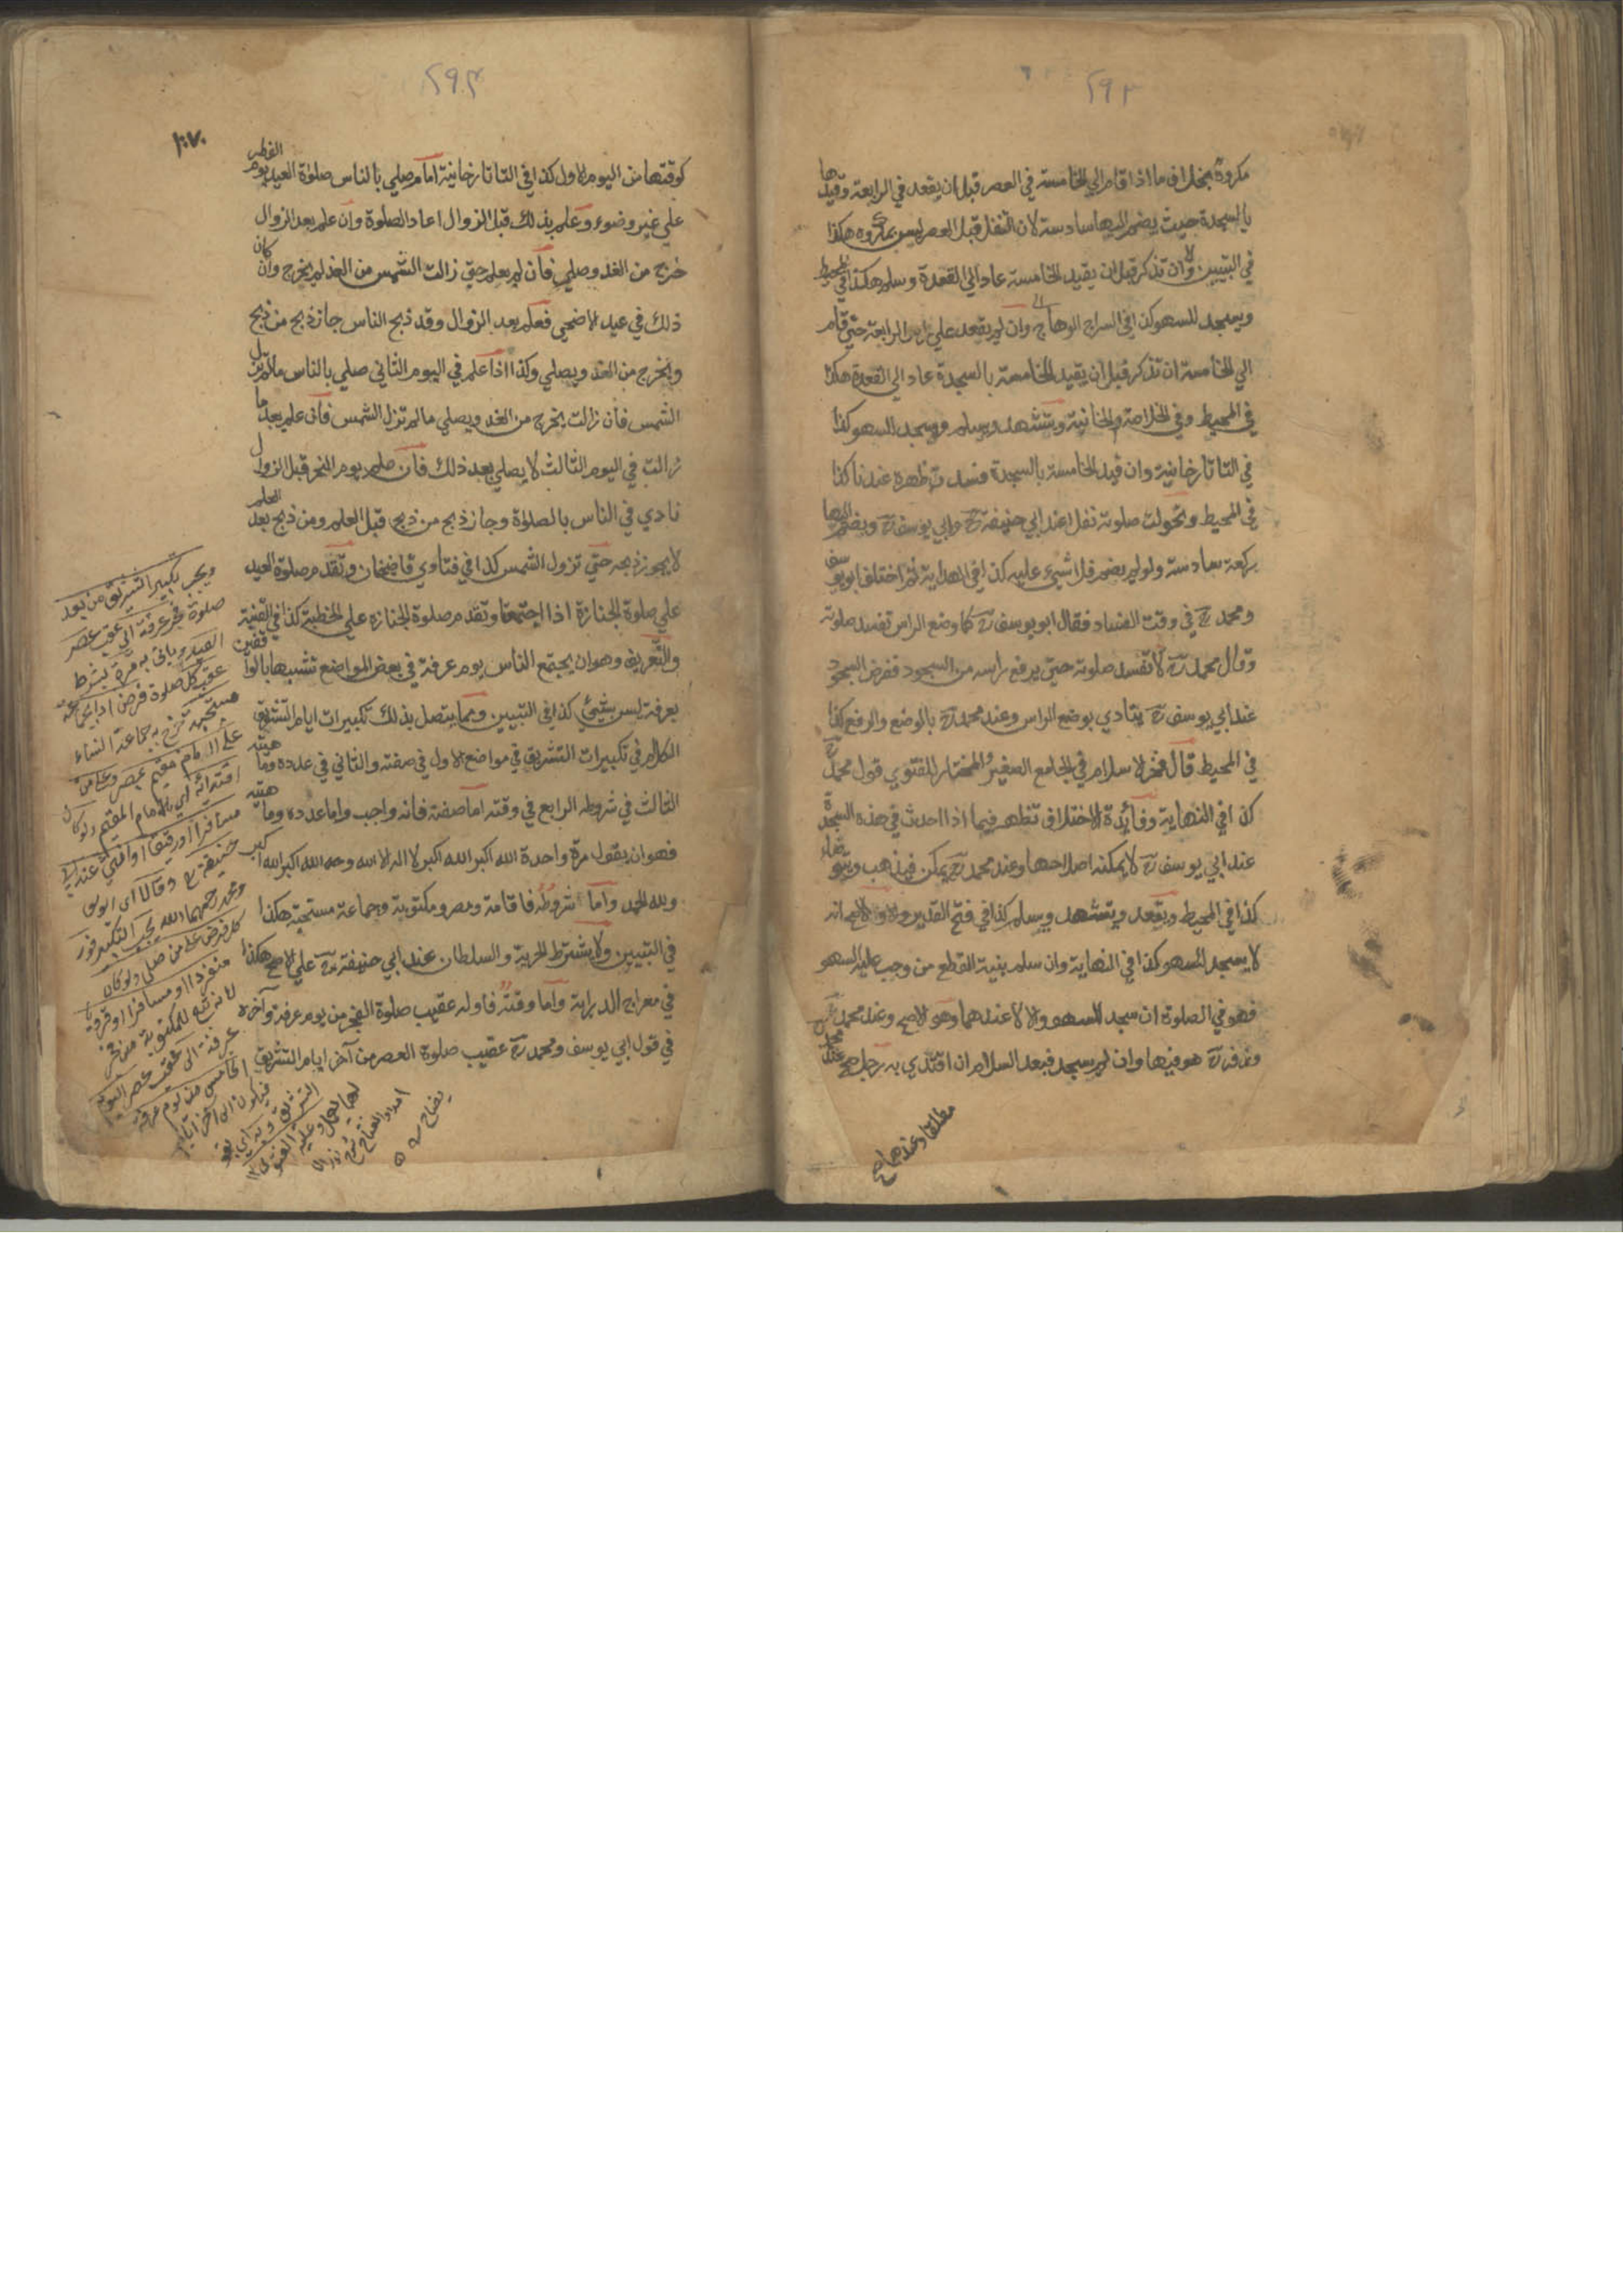 ٢٩٣
مكروه بخلاف ما اذا قام الي الخامسة في العصر قبل ان يقعد في الرابعة وقيدها
بالسجدة حيث يضم اليها سادسة لان التنفل قبل العصر ليس بمكروه هكذا
في التبيين وان تذكر قبل ان يقيد الخامسة عاد الي القعدة وسلم هكذا في المحيط
ويسجد للسهو كذا في السراج الوهاج وان لم يقعد علي راس الرابعة حتي قام
الي الخامسة ان تذكر قبل ان يقيد الخامسة بالسجدة عاد الي القعدة هكذا
في المحيط وفي الخلاصة والخانية ويتشهد ويسلم ويسجد السهو كذا
في التاتارخانية وان قيد الخامسة بالسجدة فسد ظهره عندنا كذا
في المحيط وتحولت صلوته نفلا عند ابي حنيفة رح وابي يوسف رح ويضم اليها
ركعة سادسة ولو لم يضم فلا شيء عليه كذا في الهداية ثم اختلف ابو يوسف
ومحمد رح في وقت الفساد فقال ابو يوسف رح كما وضع الراس تفسد صلوته
وقال محمد رح لا تفسد صلوته حتي يرفع راسه من السجود ففرض السجود
عند ابي يوسف رح يتادي بوضع الراس وعند محمد رح بالوضع والرفع كذا
في المحيط قال فخر الاسلام في الجامع الصغير المختار للفتوي قول محمد رح
كذا في النهاية وفائدة الاختلاف تظهر فيما اذا احدث في هذه السجدة
عند ابي يوسف رح لا يمكنه اصلاحها وعند محمد رح يمكن فيذهب ويتوضأ
كذا في المحيط ويقعد ويتشهد ويسلم كذا في فتح القدير والاصح انه
لا يسجد للسهو كذا في النهاية وان سلم بنية القطع من وجب عليه السهو
فهو في الصلوة ان سجد للسهو والا لا عندهما وهو الاصح وعند محمد
وزفر رح هو فيها وان لم يسجد فبعد السلام ان اقتدي به رجل صح عند محمد
مطلقا وعندهما
٢٩٤
كوقتها من اليوم الاول كذا في التاتارخانية امام صلي بالناس صلوة العيد يوم الفطر
علي غير وضوء وعلم بذلك قبل الزوال اعاد الصلوة وان علم بعد الزوال
خرج من الغد وصلي فان لم يعلم حتي زالت الشمس من الغد لم يخرج وان كان
ذلك في عيد الاضحي فعلم بعد الزوال وقد ذبح الناس جاز ذبح من ذبح
ويخرج من الغد ويصلي وكذا اذا علم في اليوم الثاني صلي بالناس مالم تزل
الشمس فان زالت يخرج من الغد ويصلي مالم تزل الشمس فان علم بعد ما
زالت في اليوم الثالث لا يصلي بعد ذلك فان علم يوم النحر قبل الزوال
نادي في الناس بالصلوة وجاز ذبح من ذبح قبل العلم ومن ذبح بعد العلم
لا يجوز ذبحه حتي تزول الشمس كذا في فتاوي قاضيخان وتقدم صلوة العيد
علي صلوة الجنازة اذا اجتمعتا وتقدم صلوة الجنازة علي الخطبة كذا في القنية
والتعريف وهو ان يجتمع الناس يوم عرفة في بعض المواضع تشبها بالواقفين
بعرفة ليس بشيء كذا في التبيين ومما يتصل بذلك تكبيرات ايام التشريق
الكلام في تكبيرات التشريق في مواضع الاول في صفته والثاني في عدده وماهيته
الثالث في شروطه الرابع في وقته اما صفته فانه واجب واما عدده وماهيته
فهو ان يقول مرة واحدة الله اكبر الله اكبر لا اله الا الله والله اكبر الله اكبر
ولله الحمد واما شروطه فاقامة ومصر ومكتوبة وجماعة مستحبة هكذا
في التبيين ولا يشترط الحرية والسلطان عند ابي حنيفة رح علي الاصح هكذا
في معراج الدراية واما وقته فاوله عقيب صلوة الفجر من يوم عرفة وآخره
في قول ابي يوسف ومحمد رح عقيب صلوة العصر من آخر ايام التشريق
ويجب تكبير التشريق من بعد
صلوة فجر عرفة الى عقب عصر
العيد وياتي به مرة بشرط
عقب كل صلوة فرض ادي بجماعة
مستحبة خرج به جماعة النساء
على امام مقيم بمصر وعلى من
اقتدى به اي بالامام المقيم ولو كان
مسافرا او رقيقا او انثى عند ابي
حنيفة رح وقالا اى ابو يوسف
ومحمد رحمهما الله يجب التكبير فور
كل فرض على من صلى ولو كان
منفردا او مسافرا او قرويا
لانه تبع للمكتوبة من فجر
عرفة الى عقب عصر اليوم
الخامس من يوم عرفة
فيكون الى آخر ايام
التشريق وبه اى بقو
لهما العمل وعليه الفتوى ١٢
امداد الفتاح شرح نور الا
يضاح